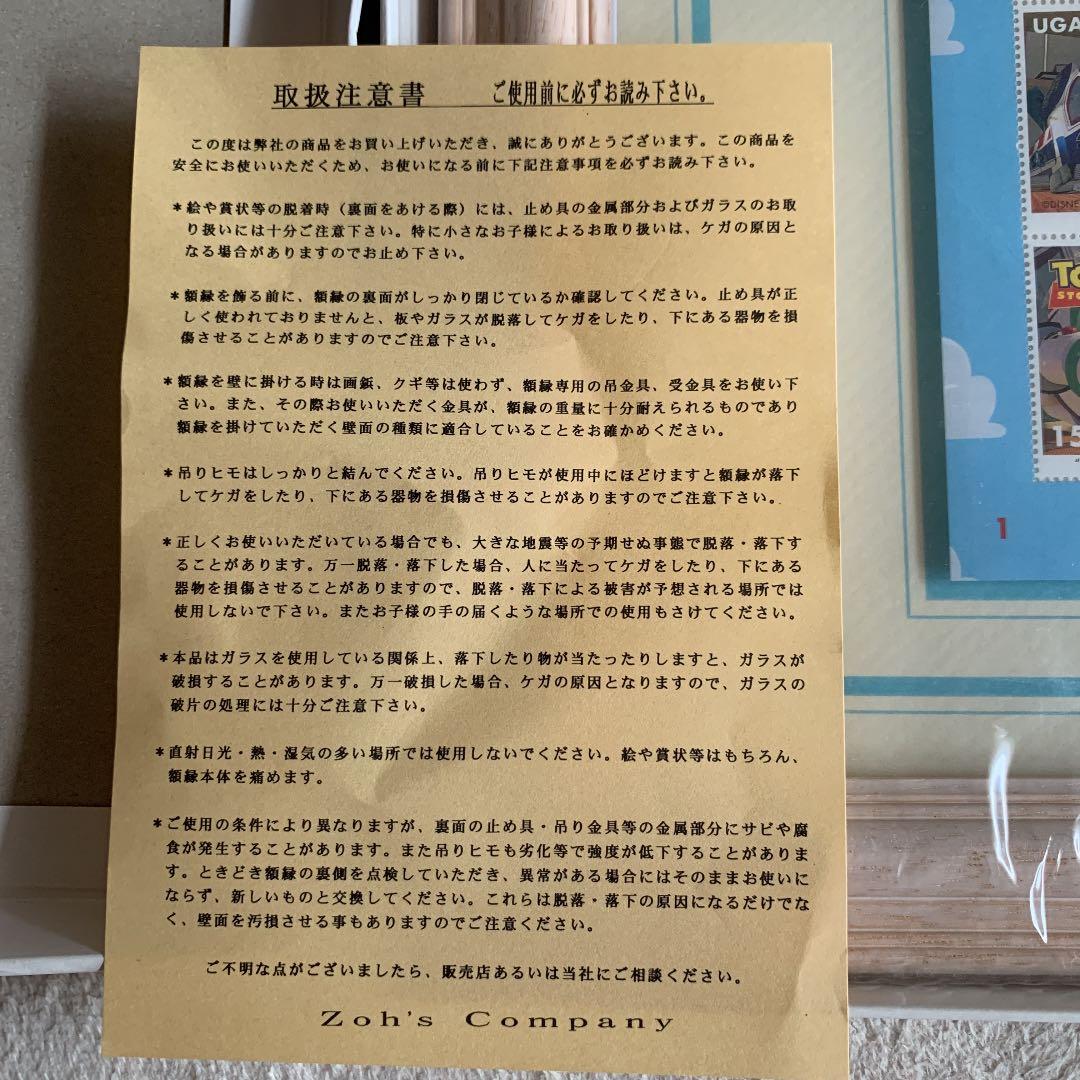 取扱注意書 ご使用前に必ずお読み下さい。
この度は弊社の商品をお買い上げいただき、誠にありがとうございます。この商品を
安全にお使いいただくため、お使いになる前に下記注意事項を必ずお読み下さい。
＊絵や賞状等の脱着時（裏面をあける際）には、止め具の金属部分およびガラスのお取
り扱いには十分ご注意下さい。特に小さなお子様によるお取り扱いは、ケガの原因と
なる場合がありますのでお止め下さい。
＊額縁を飾る前に、額縁の裏面がしっかり閉じているか確認してください。止め具が正
しく使われておりませんと、板やガラスが脱落してケガをしたり、下にある器物を損
傷させることがありますのでご注意下さい。
＊額縁を壁に掛ける時は画鋲、クギ等は使わず、額縁専用の吊金具、受金具をお使い下
さい。また、その際お使いいただく金具が、額縁の重量に十分耐えられるものであり
額縁を掛けていただく壁面の種類に適合していることをお確かめください。
＊吊りヒモはしっかりと結んでください。吊りヒモが使用中にほどけますと額縁が落下
してケガをしたり、下にある器物を損傷させることがありますのでご注意下さい。
＊正しくお使いいただいている場合でも、大きな地震等の予期せぬ事態で脱落・落下す
ることがあります。万一脱落・落下した場合、人に当たってケガをしたり、下にある
器物を損傷させることがありますので、脱落・落下による被害が予想される場所では
使用しないで下さい。またお子様の手の届くような場所での使用もさけてください。
＊本品はガラスを使用している関係上、落下したり物が当たったりしますと、ガラスが
破損することがあります。万一破損した場合、ケガの原因となりますので、ガラスの
破片の処理には十分ご注意下さい。
＊直射日光・熱・湿気の多い場所では使用しないでください。絵や賞状等はもちろん、
額縁本体を痛めます。
＊ご使用の条件により異なりますが、裏面の止め具・吊り金具等の金属部分にサビや腐
食が発生することがあります。また吊りヒモも劣化等で強度が低下することがありま
す。ときどき額縁の裏側を点検していただき、異常がある場合にはそのままお使いに
ならず、新しいものと交換してください。これらは脱落・落下の原因になるだけでな
く、壁面を汚損させる事もありますのでご注意ください。
ご不明な点がございましたら、販売店あるいは当社にご相談ください。
Zoh's Company
UGA
©DISNE
To
STO
15
1